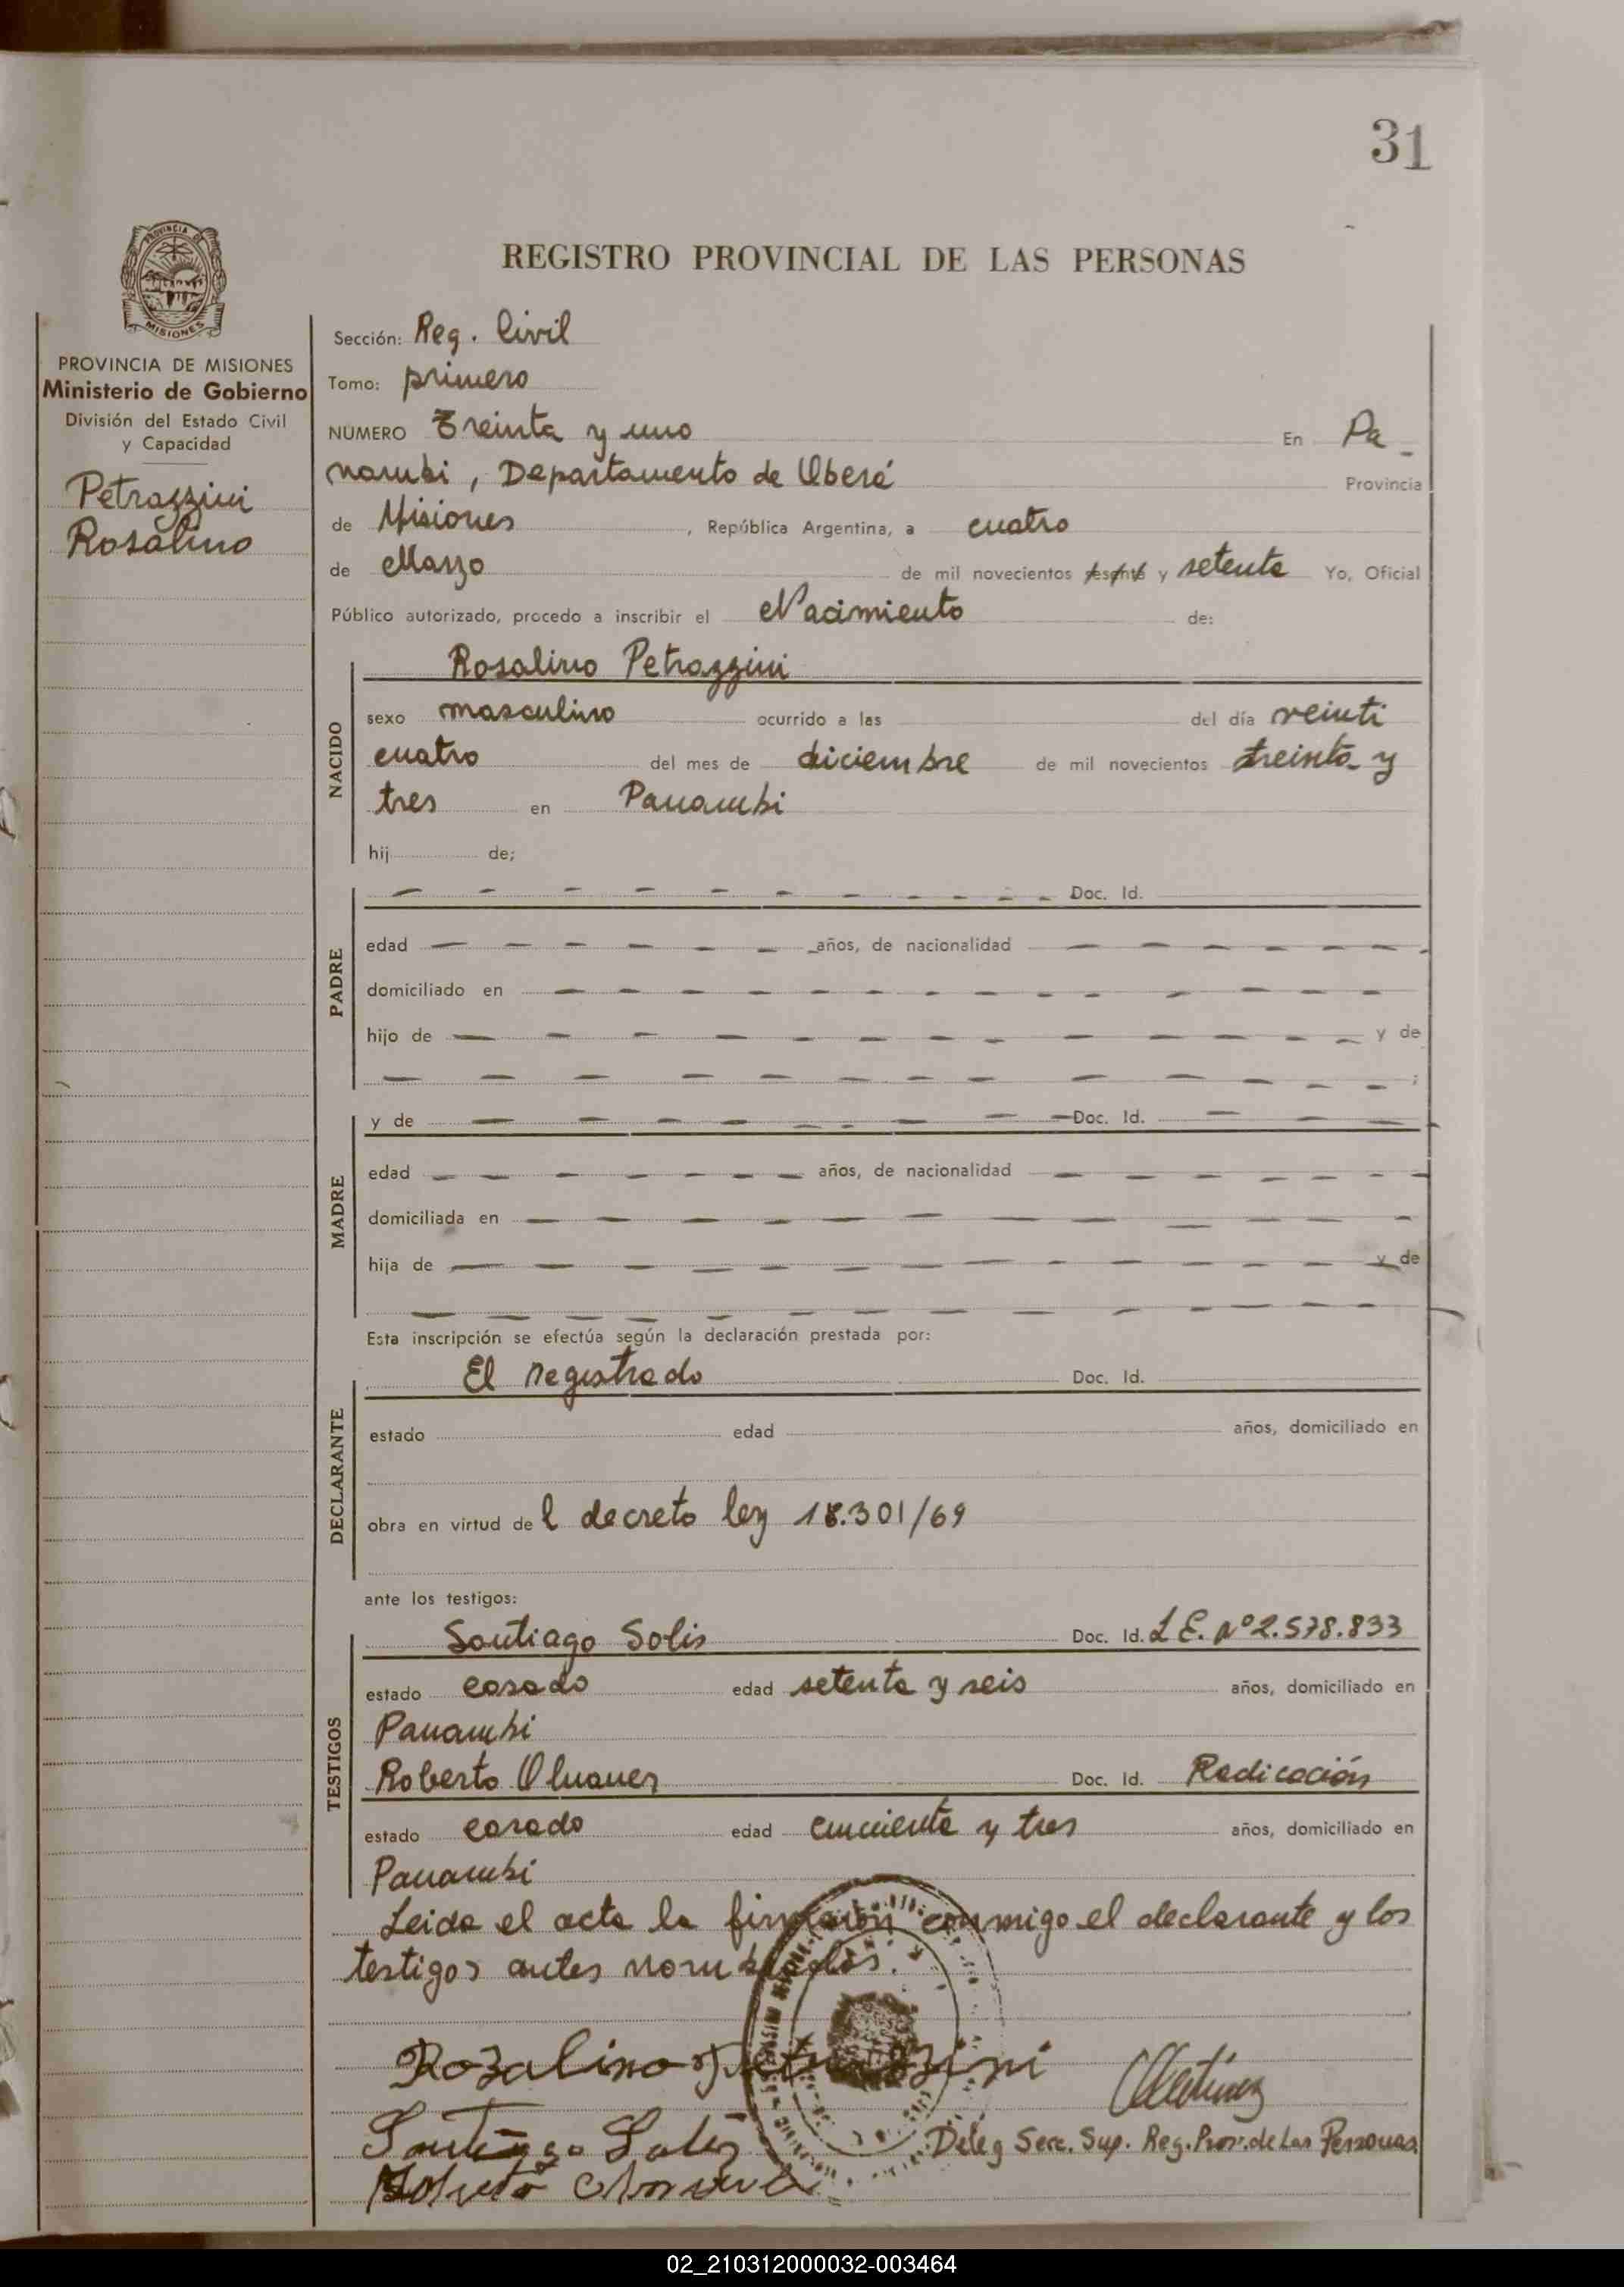 31
PROVINCIA DE
MISIONES
PROVINCIA DE MISIONES
Ministerio de Gobierno
División del Estado Civil
y Capacidad
Petrazzini
Rosalino
REGISTRO PROVINCIAL DE LAS PERSONAS
Sección: Reg. Civil
Tomo: primero
NUMERO Treinta y uno En Pa_
nambi, Departamento de Oberá Provincia
de Misiones, República Argentina, a cuatro
de Marzo de mil novecientos sesenta y setenta Yo, Oficial
Público autorizado, procedo a inscribir el Nacimiento de:
Rosalino Petrazzini
NACIDO
sexo masculino ocurrido a las del día veinti
cuatro del mes de diciembre de mil novecientos treinta y
tres en Panambi
hij de;
PADRE
Doc. Id.
edad años, de nacionalidad
domiciliado en
hijo de y de
;
MADRE
y de Doc. Id.
edad años, de nacionalidad
domiciliada en
hija de y de
Esta inscripción se efectúa según la declaración prestada por:
DECLARANTE
El registrado Doc. Id.
estado edad años, domiciliado en
obra en virtud del decreto ley 18.301/69
ante los testigos:
TESTIGOS
Santiago Solis Doc. Id. L.E. Nº 2.578.833
estado casado edad setenta y seis años, domiciliado en
Panambi
Roberto Doc. Id. Radicación
estado casado edad cincuenta y tres años, domiciliado en
Panambi
Leida el acta la firmaron conmigo el declarante y los
testigos antes nombrados.
Rozalino Petrazzini
Santiago Solis
Deleg Secc. Sup. Reg. Prov. de Las Personas
02_210312000032-003464